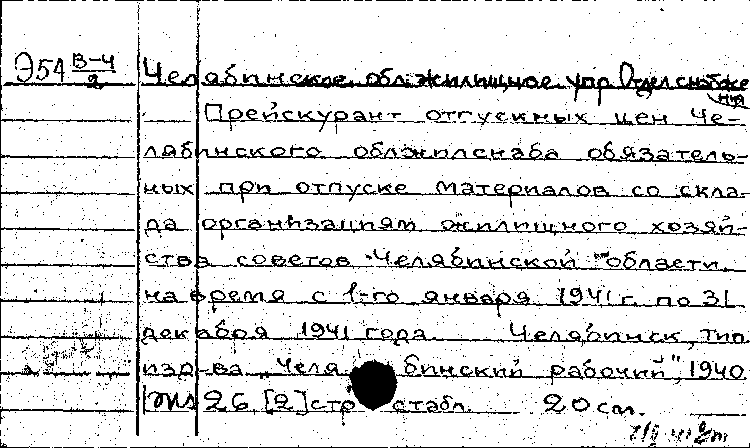 Э54 В-4/2 Челябинское обл. жилищное упр. Отдел снабже
ния
Прейскурант отпускных цен Че-
лябинского облжилснаба обязатель-
ных при отпуске материалов со скла-
да организациям жилищного хозяй-
ства советов Челябинской области
на время с 1-го января 1941 г. по 31
декабря 1941 года Челябинск, тип.
изд-ва "Челябинский рабочий", 1940
26, [2] стр с табл. 20 см.